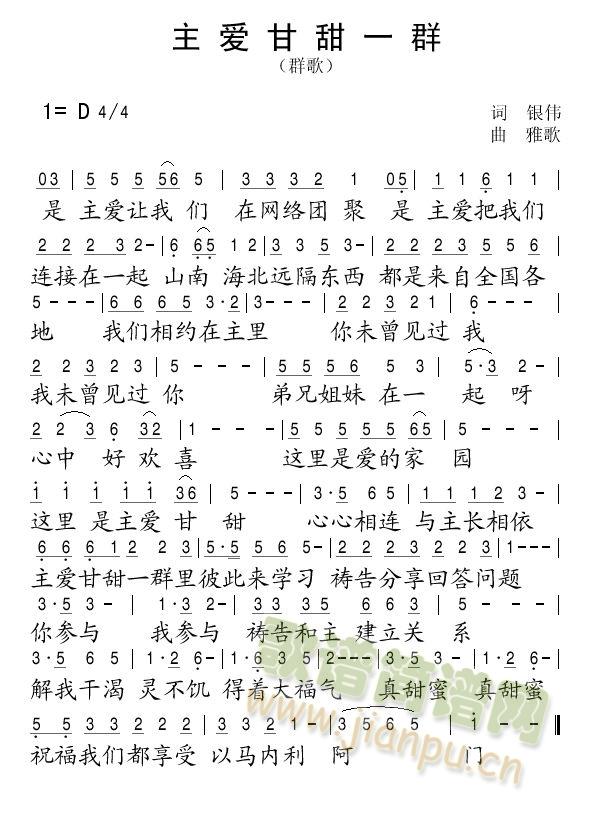 主爱甘甜一群
（群歌）
1= D 4/4
词 银伟
曲 雅歌
03 | 5 5 5 56 5 | 3 3 3 2 1 05 | 1 1 6 1 1 |
是 主爱让我 们 在网络团 聚 是 主爱把我们
2 2 2 3 2- | 6 65 1 2 | 3 3 3 3- | 2 2 2 3 5 5 6 |
连接在一起 山南 海北远隔东西 都是来自全国各
5 - - - | 6 6 6 5 3·2 | 3 - - - | 2 2 3 2 1 | 6 - - - |
地 我们相约在主里 你未曾见过 我
2 2 3 2 3 | 5 - - - | 5 5 5 6 5 3 | 5·3 2- |
我未曾见过 你 弟兄姐妹 在一 起 呀
2 2 3 6 32 | 1 - - - | 5 5 5 5 5 65 | 5 - - - |
心中 好 欢 喜 这里是爱的家 园
1 1 1 1 1 36 | 5 - - - | 3·5 6 5 | 1 1 1 2 3 |
这里 是主爱 甘 甜 心心相连 与主长相依
6 6 6 1 2 | 5·5 5 6 5 5 | 2 2 2 3 2 2 3 2 | 1- - - |
主爱甘甜一群里彼此来学习 祷告分享回答问题
3·5 3- | 3·5 3- | 2 3 3 5 5 | 3 5 6 5 | 5 - - - |
你参与 我参与 祷告和主 建立关 系
3·5 6 5 | 1·2 6- | 5 5 6 5 3 2 | 3·5 6- | 1·2 6- |
解我干渴 灵不饥 得着大福气 真甜蜜 真甜蜜
5 5 5 3 2 3 3 | 2 2 2 3 2 1 | 3 5 6 5 | 1 - -
祝福我们都享受 以马内利 阿 门
歌谱简谱网
www.jianpu.cn